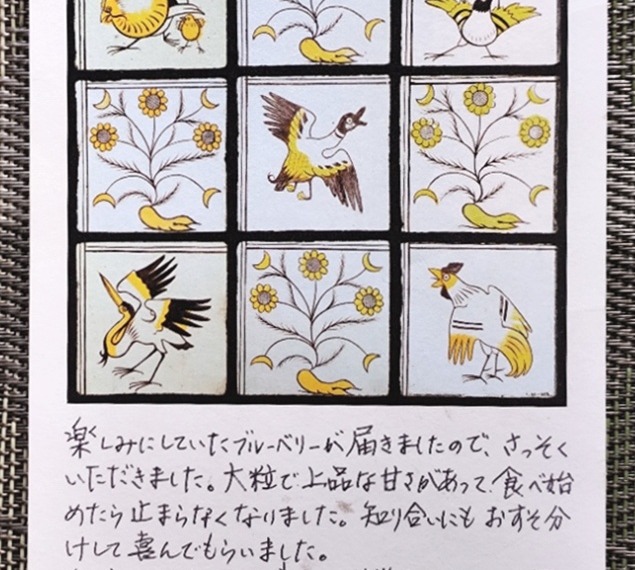 楽しみにしていたブルーベリーが届きましたので、さっそく
いただきました。大粒で上品な甘さがあって、食べ始
めたら止まらなくなりました。知り合いにもおすそ分
けして喜んでもらいました。